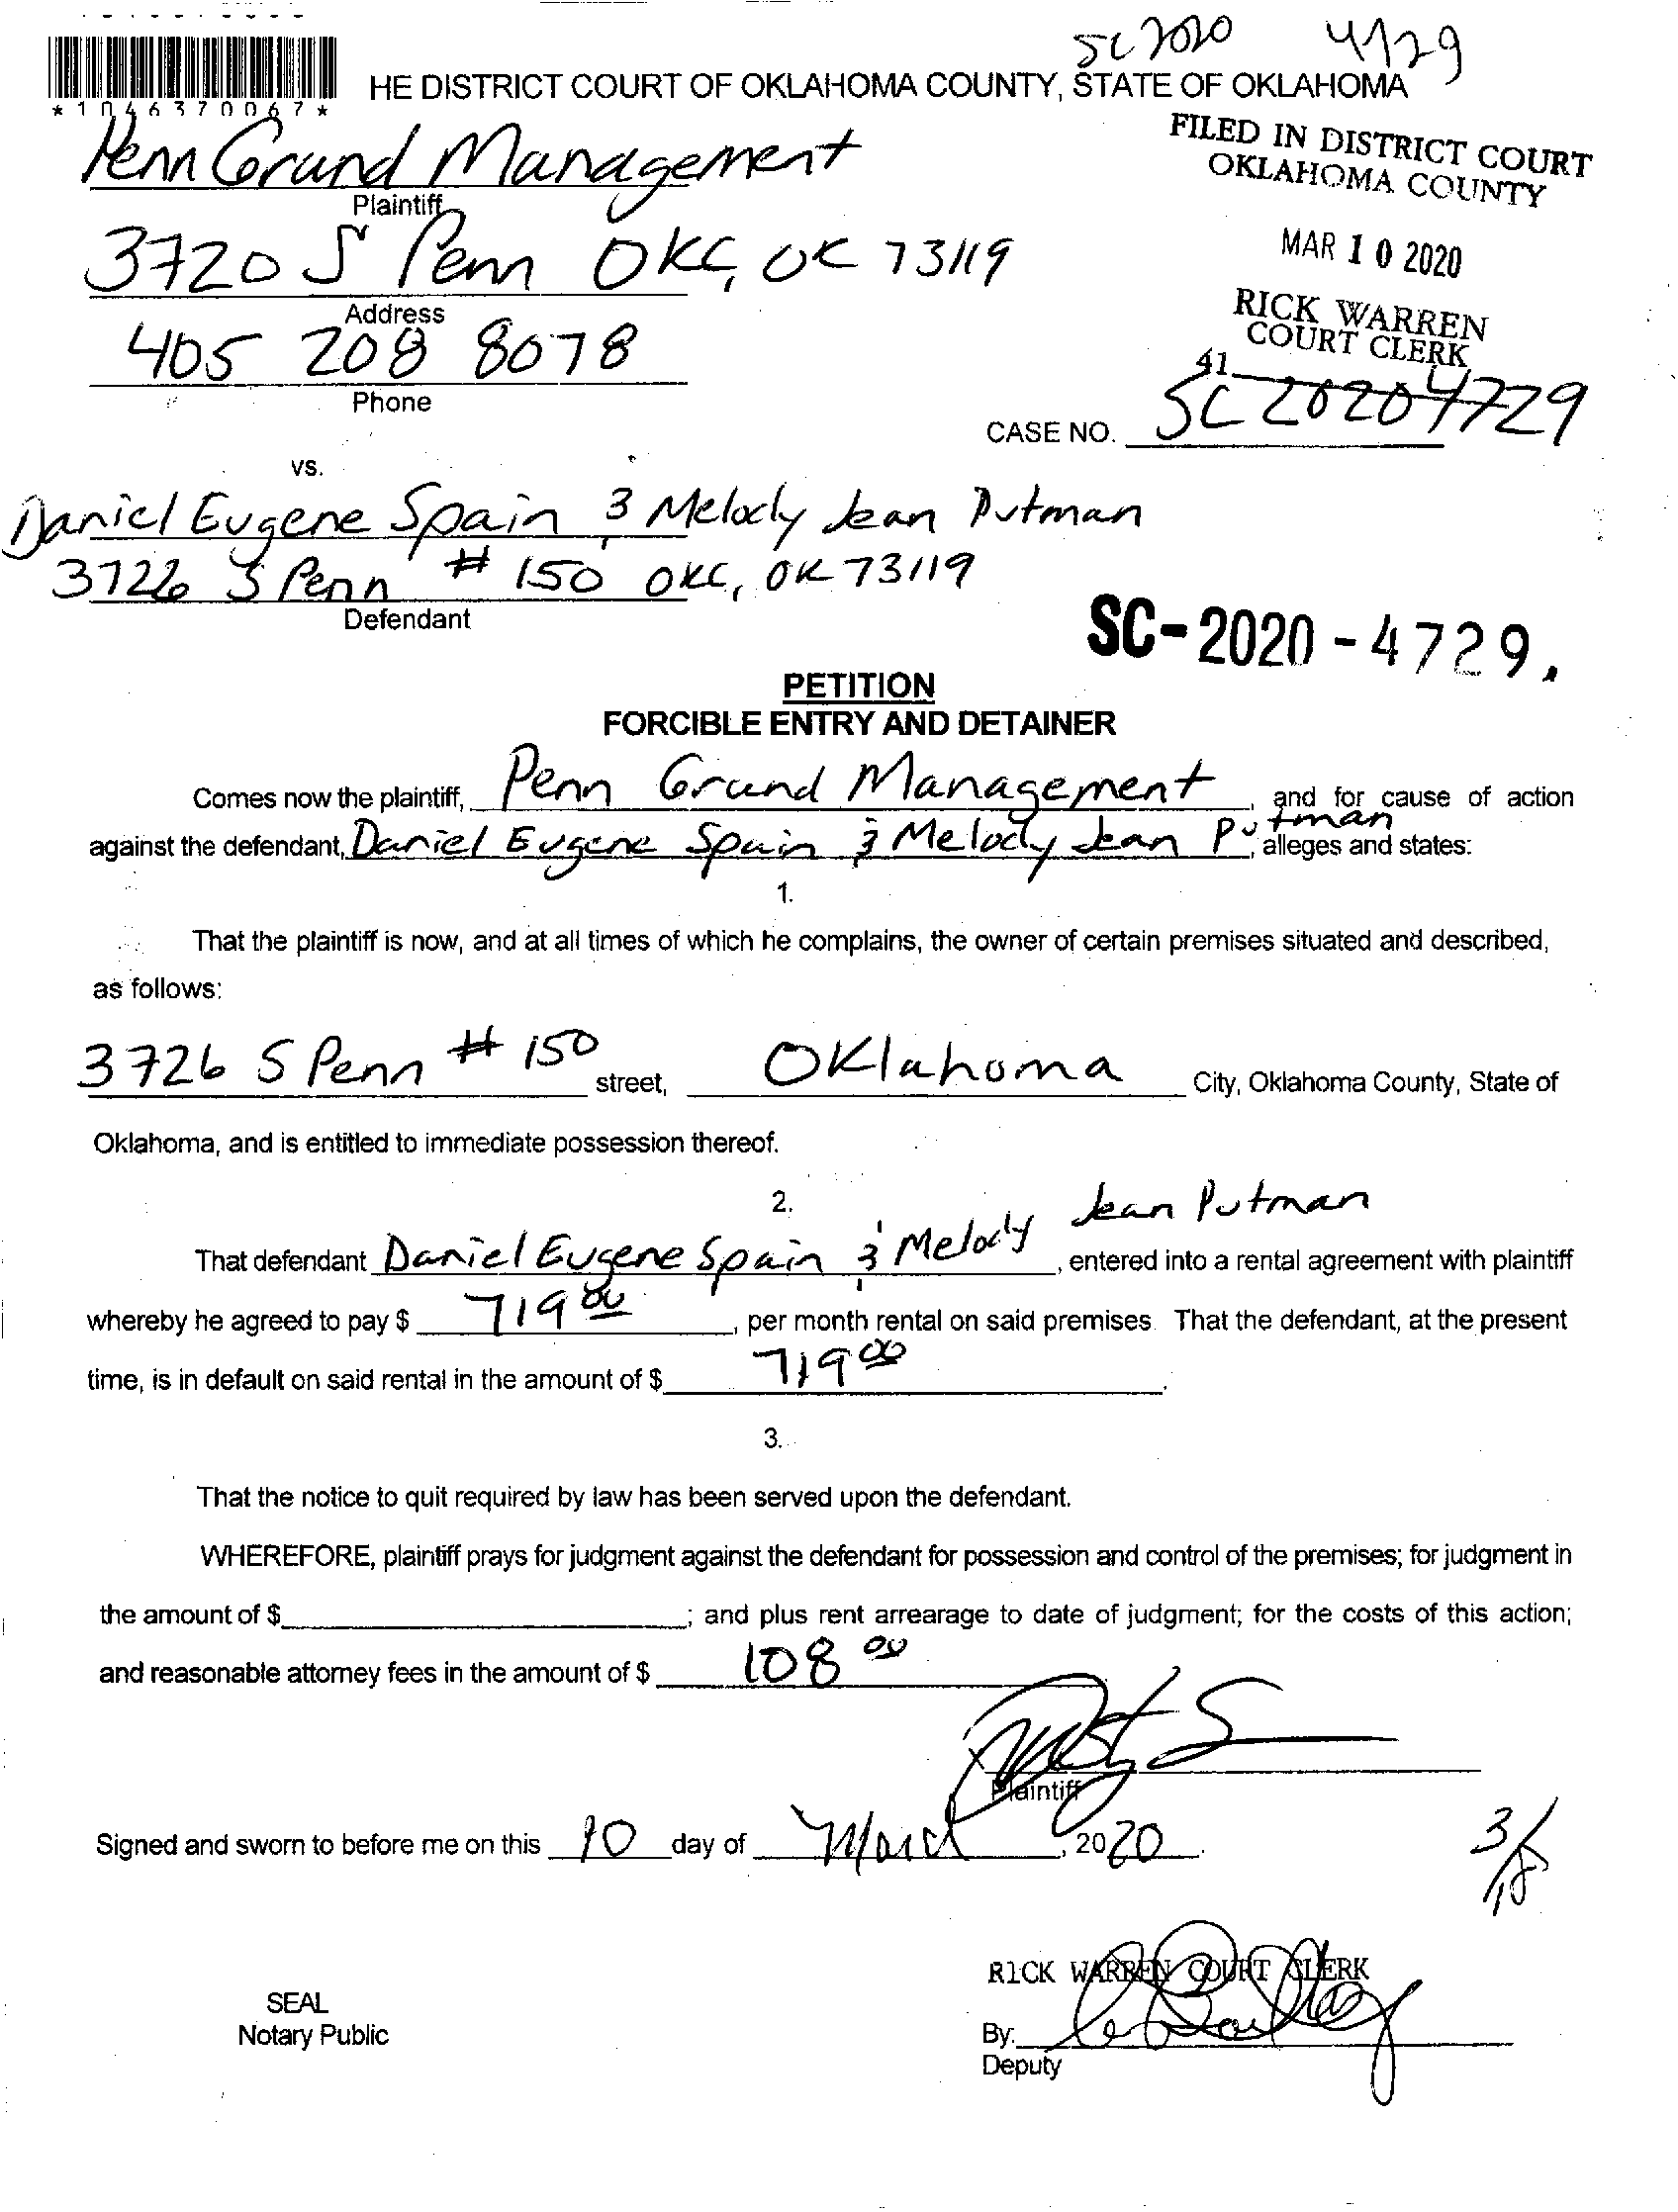 SC 2020 4729
HE DISTRICT COURT OF OKLAHOMA COUNTY, STATE OF OKLAHOMA
*1046370067*
Penn Grand Management
Plaintiff
FILED IN DISTRICT COURT
OKLAHOMA COUNTY
3720 S Penn OKC, OK 73119
Address
MAR 10 2020
405 208 8078
Phone
RICK WARREN
COURT CLERK
41
CASE NO. SC 2020 4729
vs.
Daniel Eugene Spain & Melody Jean Putman
3726 S Penn # 150 OKC, OK 73119
Defendant
SC-2020-4729,
PETITION
FORCIBLE ENTRY AND DETAINER
Comes now the plaintiff, Penn Grand Management, and for cause of action
against the defendant, Daniel Eugene Spain & Melody Jean Putman, alleges and states:
1.
That the plaintiff is now, and at all times of which he complains, the owner of certain premises situated and described,
as follows:
3726 S Penn # 150 street, Oklahoma City, Oklahoma County, State of
Oklahoma, and is entitled to immediate possession thereof.
2.
That defendant Daniel Eugene Spain & Melody Jean Putman, entered into a rental agreement with plaintiff
whereby he agreed to pay $ 719 00, per month rental on said premises. That the defendant, at the present
time, is in default on said rental in the amount of $ 719 00.
3.
That the notice to quit required by law has been served upon the defendant.
WHEREFORE, plaintiff prays for judgment against the defendant for possession and control of the premises; for judgment in
the amount of $ ; and plus rent arrearage to date of judgment; for the costs of this action;
and reasonable attorney fees in the amount of $ 108 00
Plaintiff
Signed and sworn to before me on this 10 day of March, 2020.
3/18
RICK WARREN COURT CLERK
SEAL
Notary Public
By:
Deputy